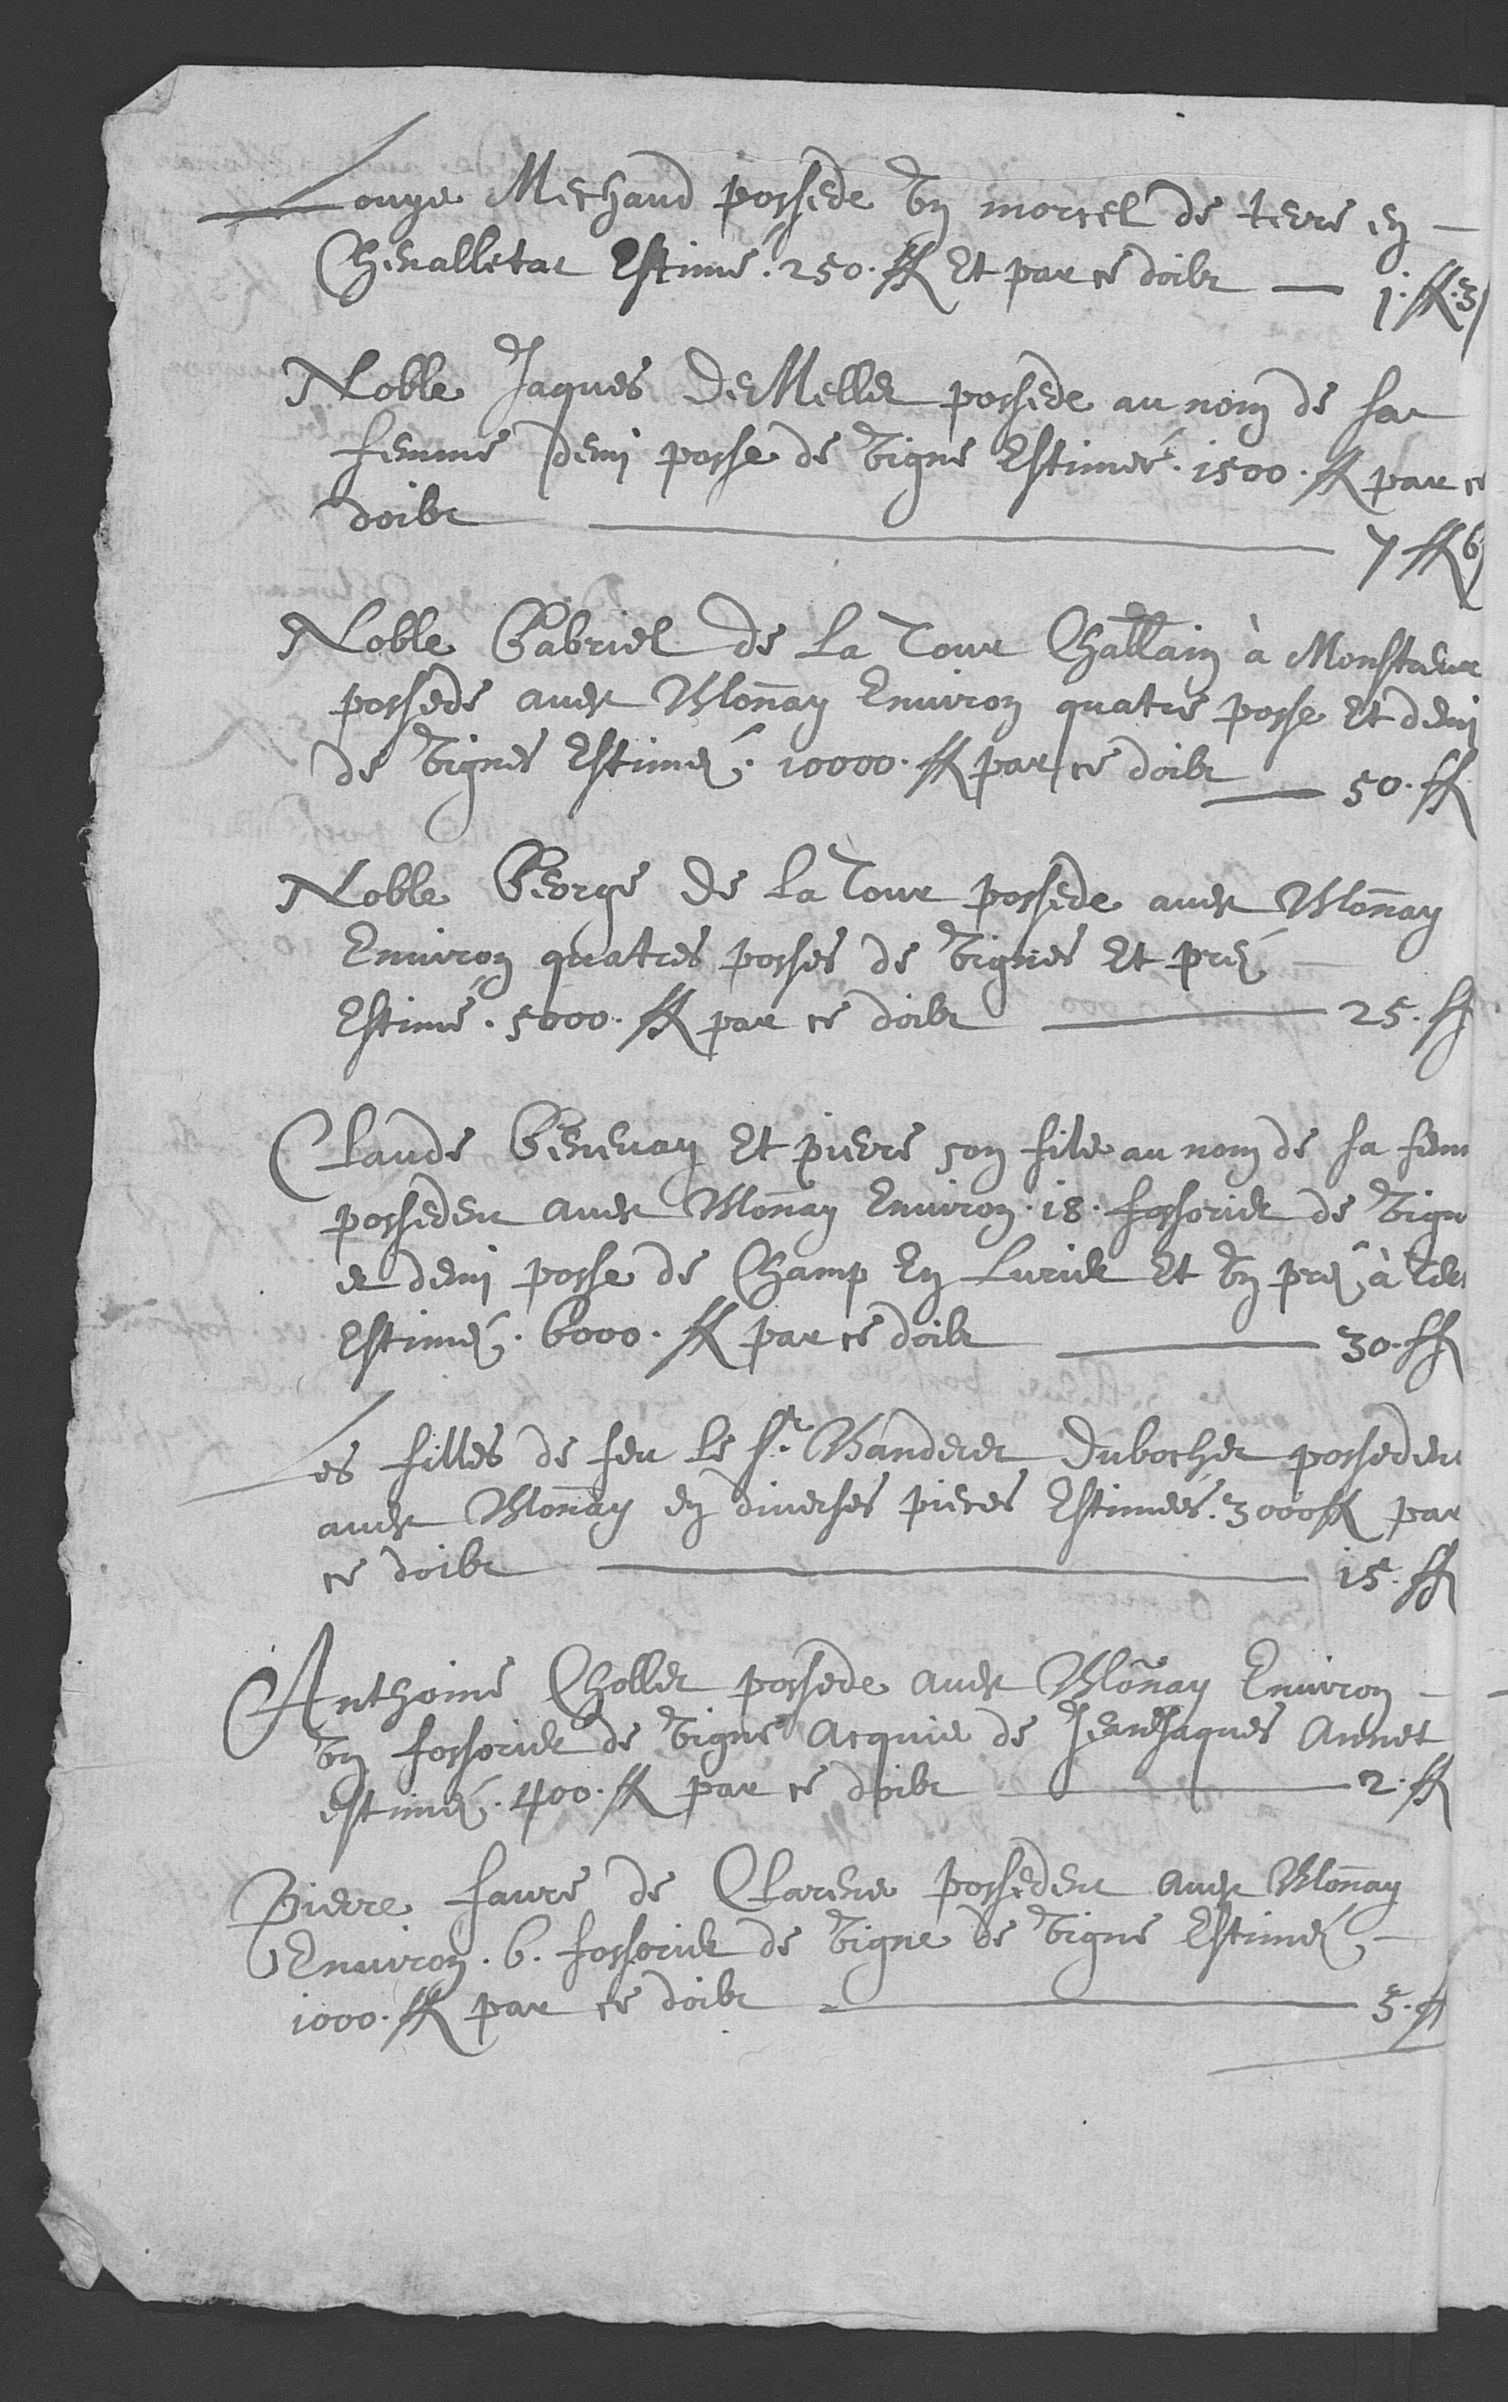 Louys Mechaud possede Un morcel de terre en
Chenalletat Estimé. 250. ff Et par ce doibt — 1. ff. 3
Noble Jaques De Mellet possede au nom de sa
femme demi posse de Vigne Estimée. 1500. ff par ce
doibt — 7 ff 6
Noble Gabriel de La Tour Chatlain à Monstreux
possede auest Blonnay Environ quatre posse Et demi
de Vignes Estimé. 10000. ff par ce doibt — 50. ff
Noble George de La Tour possede auest Blonnay
Environ quatres posses de Vignes Et pré
Estimé. 5000. ff par ce doibt — 25. ff
Claude Genevay Et pierre son filz au nom de sa fem
possedent auest Blonnay Environ. 18. fossorier de Vign
et demi posse de Champ En Lurier Et Un pré à
Estimé. 6000. ff par ce doibt — 30. ff
Les filles de feu Le Sr. Banderet Dubochet possedent
auest Blonnay en diverses pieces Estimées. 3000 ff par
ce doibt — 15. ff
Anthoine Chollet possede auest Blonay Environ
Un fossorier de Vigne Acquis de Jean Jaques Aunet
estimé. 400. ff par ce doibt — 2. ff
Pierre Favre de Clarens possedent auest Blonnay
Environ. 6. fossorier de Vigne de Vigne Estimé
1000. ff par ce doibt — 5. ff